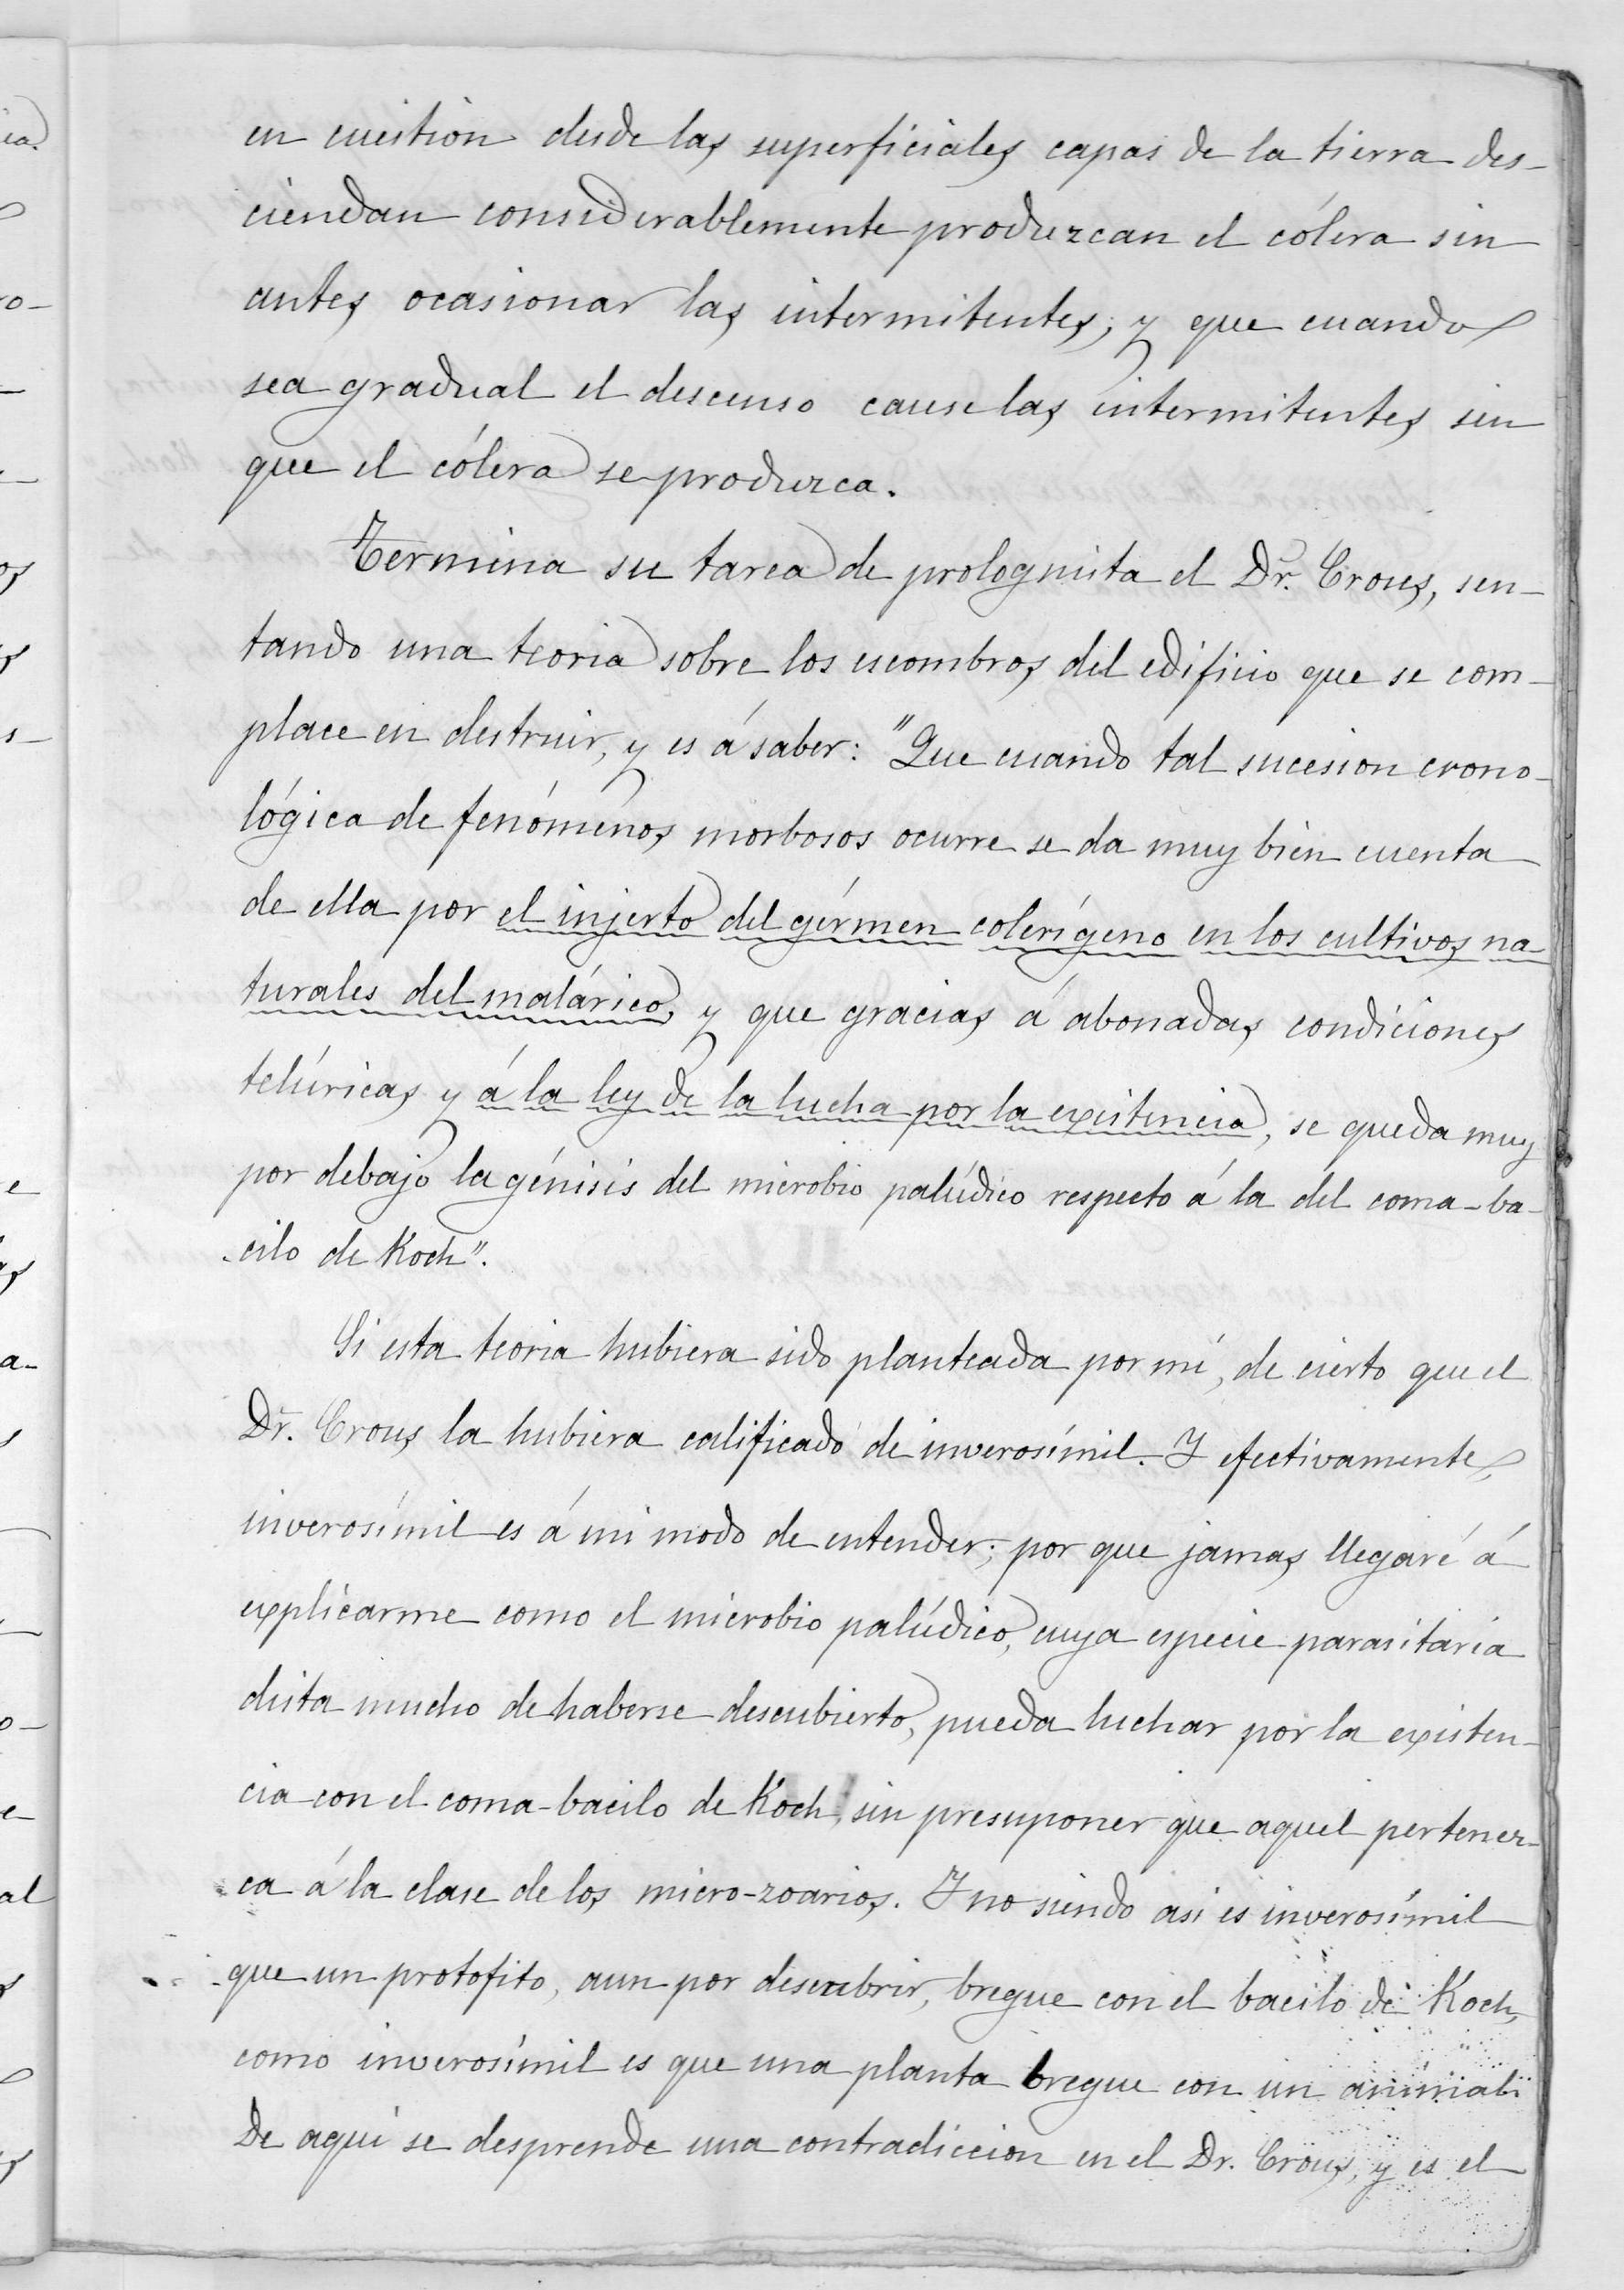 en cuestion desde las superficiales capas de la tierra des-
ciendan considerablemente produzcan el cólera sin
antes ocasionar las intermitentes; y que cuando
sea gradual el descenso cause las intermitentes sin
que el cólera se produzca.
Termina su tarea de prologuista el Dr. Crous, sen-
tando una teoria sobre los escombros del edificio que se com-
place en destruir, y es á saber: "Que cuando tal sucesion crono-
lógica de fenómenos morbosos ocurre se da muy bien cuenta
de ella por el injerto del gérmen colerígeno en los cultivos na-
turales del malárico, y que gracias á abonadas condiciones
telúricas y á la ley de la lucha por la existencia, se queda muy
por debajo la génisis del microbio palúdico respecto á la del coma-ba-
cilo de Koch".
Si esta teoria hubiera sido planteada por mí, de cierto que el
Dr. Crous la hubiera calificado de inverosímil. Y efectivamente,
inverosímil es á mi modo de entender; por que jamas llegaré á
explicarme como el microbio palúdico, cuya especie parasitaria
dista mucho de haberse descubierto, pueda luchar por la existen-
cia con el coma-bacilo de Koch, sin presuponer que aquel pertenez-
ca á la clase de los micro-zoarios. Y no siendo asi es inverosímil
que un protofito, aun por descubrir, bregue con el bacilo de Koch,
como inverosímil es que una planta bregue con un animal.
De aquí se desprende una contradiccion en el Dr. Crous, y es el